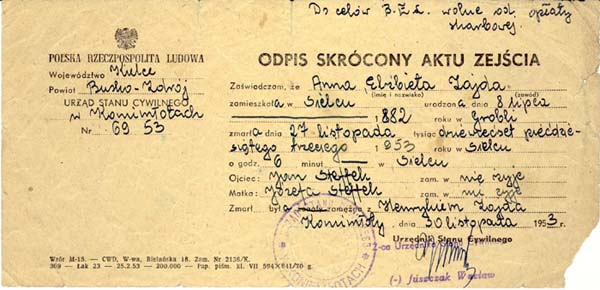 Do celów B.Z.Ł. wolne od opłaty
skarbowej.
POLSKA RZECZPOSPOLITA LUDOWA
Województwo Kielce
Powiat Busko-Zdrój
URZĄD STANU CYWILNEGO
w Koniemłotach
Nr 69 53
ODPIS SKRÓCONY AKTU ZEJŚCIA
Zaświadczam, że Anna Elżbieta Zajda
(imię i nazwisko) (zawód)
zamieszkała w Sielcu urodzona dnia 8 lipca
1882 roku w Grobli
zmarła dnia 27 listopada tysiąc dziewięćset pięćdzie-
siątego trzeciego 1953 roku w Sielcu
o godz. 6 minut — w Sielcu
Ojciec: Jan Steffek zam. w nie żyje
Matka: Józefa Steffek zam. w nie żyje
Zmarła była zamężna z Henrykiem Zajda
Koniemłoty dnia 30 listopada 1953 r.
Urzędnik Stanu Cywilnego
(-) Juszczak Wacław
Wzór M-15. — CWD, W-wa, Bielańska 18. Zam. Nr 2136/K.
369 — Łak 23 — 25.2.53 — 200.000 — Pap. piśm. kl. VII